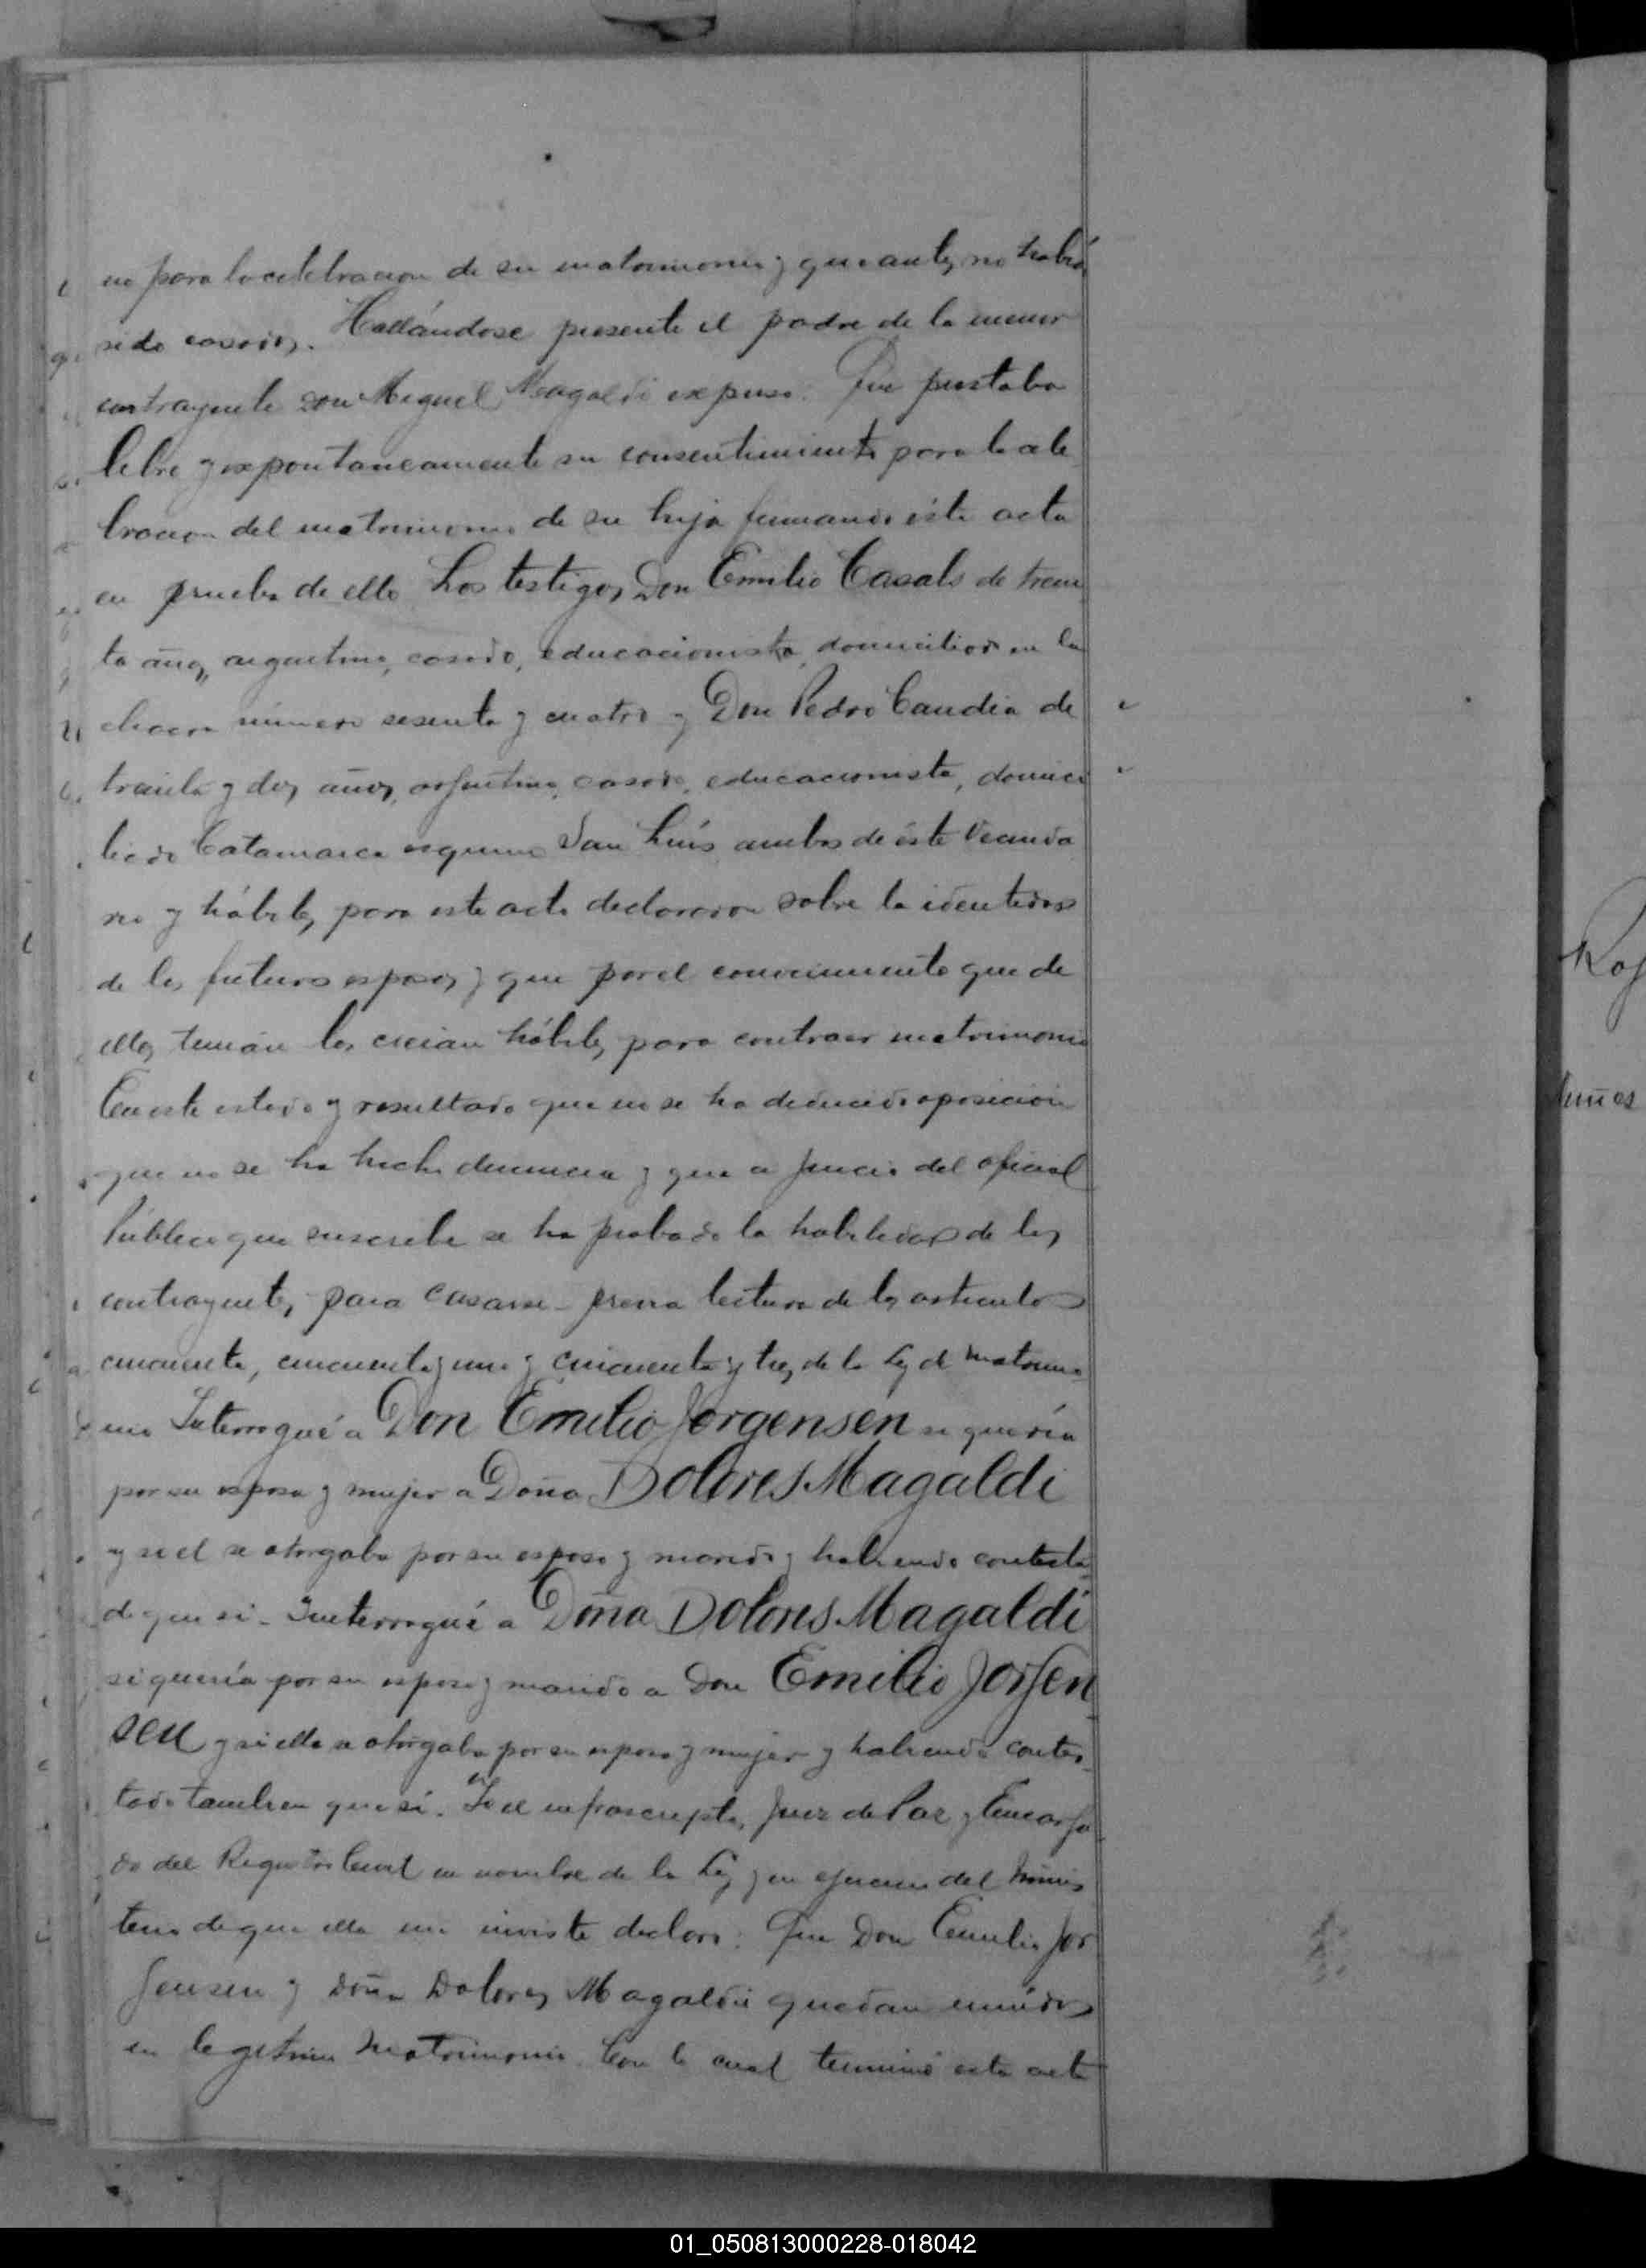 no para la celebracion de su matrimonio y que antes no habia
sido casados. Hallándose presente el padre de la menor
contrayente don Miguel Magaldi expuso: Que prestaba
libre y expontaneamente su consentimiento para la cele
bracion del matrimonio de su hija firmando éste acta
en prueba de ello Los testigos Don Emilio Casals de trein
ta años, argentino, casado, educacionista, domiciliado en la
chacra número sesenta y cuatro y Don Pedro Candia de
treinta y dos años, argentino, casado, educacionista, domici
liado Catamarca esquina San Luís ambos de éste vecinda
rio y hábiles para este acto declararon sobre la identidad
de los futuros esposos y que por el conocimiento que de
ellos tenían los creian hábiles para contraer matrimonio
En este estado y resultado que no se ha deducido oposicion
que no se ha hecho denuncia y que a juicio del oficial
Público que suscribe se ha probado la habilidad de los
contrayentes para casarse - previa lectura de los articulos
cincuenta, cincuenta y uno y cincuenta y tres de la Ley de matrimo
nio Interrogué a Don Emilio Jorgensen si quería
por su esposa y mujer a Doña Dolores Magaldi
y si el se otorgaba por su esposo y marido y habiendo contesta
do que si - Interrogué a Doña Dolores Magaldi
si quería por su esposo y marido a Don Emilio Jorgen
sen y si ella se otorgaba por su esposa y mujer y habiendo contes
tado tambien que si. Yo el infrascripto, Juez de Paz y Encarga
do del Registro Civil en nombre de la Ley y en ejercicio del minis
terio de que ella me inviste declaro: Que Don Emilio Jor
gensen y doña Dolores Magaldi quedan unidos
en legítimo matrimonio Con lo cual terminó este acto
Roj
01_050813000228-018042